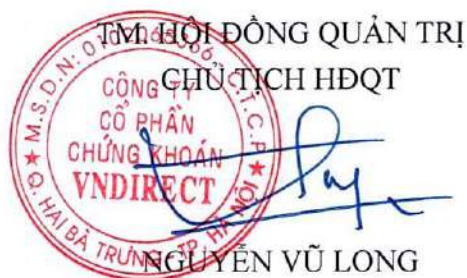 TM. HỘI ĐỒNG QUẢN TRỊ
CHỦ TỊCH HĐQT
CÔNG TY
CỔ PHẦN
CHỨNG KHOÁN
VNDIRECT
M.S.D.N: C.T.C.P
Q. HAI BÀ TRƯNG TP HÀ NỘI
NGUYỄN VŨ LONG